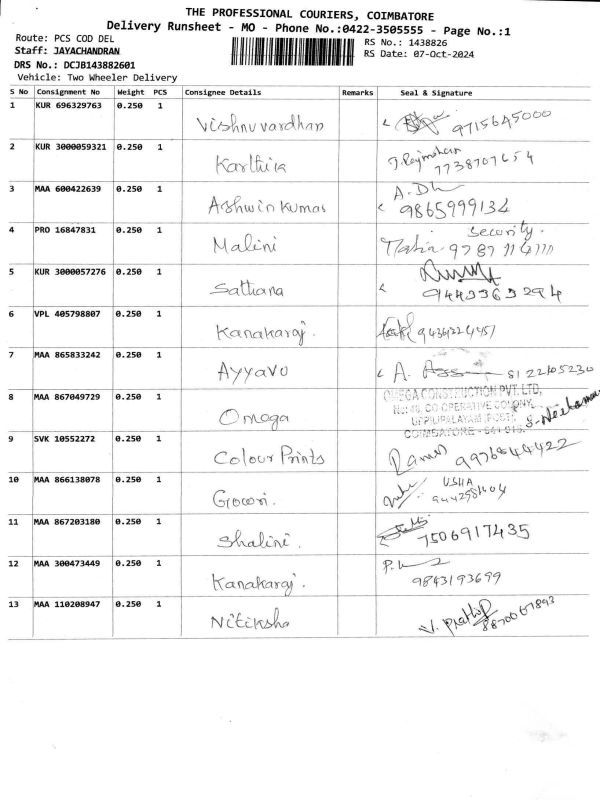 THE PROFESSIONAL COURIERS, COIMBATORE
Delivery Runsheet - MO - Phone No.:0422-3505555 - Page No.:1
Route: PCS COD DEL
RS No.: 1438826
Staff: JAYACHANDRAN
RS Date: 07-Oct-2024
DRS No.: DCJB143882601
Vehicle: Two Wheeler Delivery
S No Consignment No Weight PCS Consignee Details Remarks Seal & Signature
1 KUR 696329763 0.250 1 Vishnuvardhan 9715645000
2 KUR 3000059321 0.250 1 Karthika 7738707654
3 MAA 600422639 0.250 1 Ashwin Kumar A. Dh 9865999134
4 PRO 16847831 0.250 1 Malini Security.
5 KUR 3000057276 0.250 1 Sathana 9443363294
6 VPL 405798807 0.250 1 Kanakaraj.
7 MAA 865833242 0.250 1 Ayyavu A. 8122105230
8 MAA 867049729 0.250 1 Omega OMEGA CONSTRUCTION PVT. LTD,
CO OPERATIVE COLONY,
UPPILIPALAYAM POST,
COIMBATORE - 641 015.
9 SVK 10552272 0.250 1 Colour Prints
10 MAA 866138078 0.250 1 Gowri. USHA
11 MAA 867203180 0.250 1 Shalini. 7506917435
12 MAA 300473449 0.250 1 Kanakaraj. 9843193699
13 MAA 110208947 0.250 1 Nitiksha V.